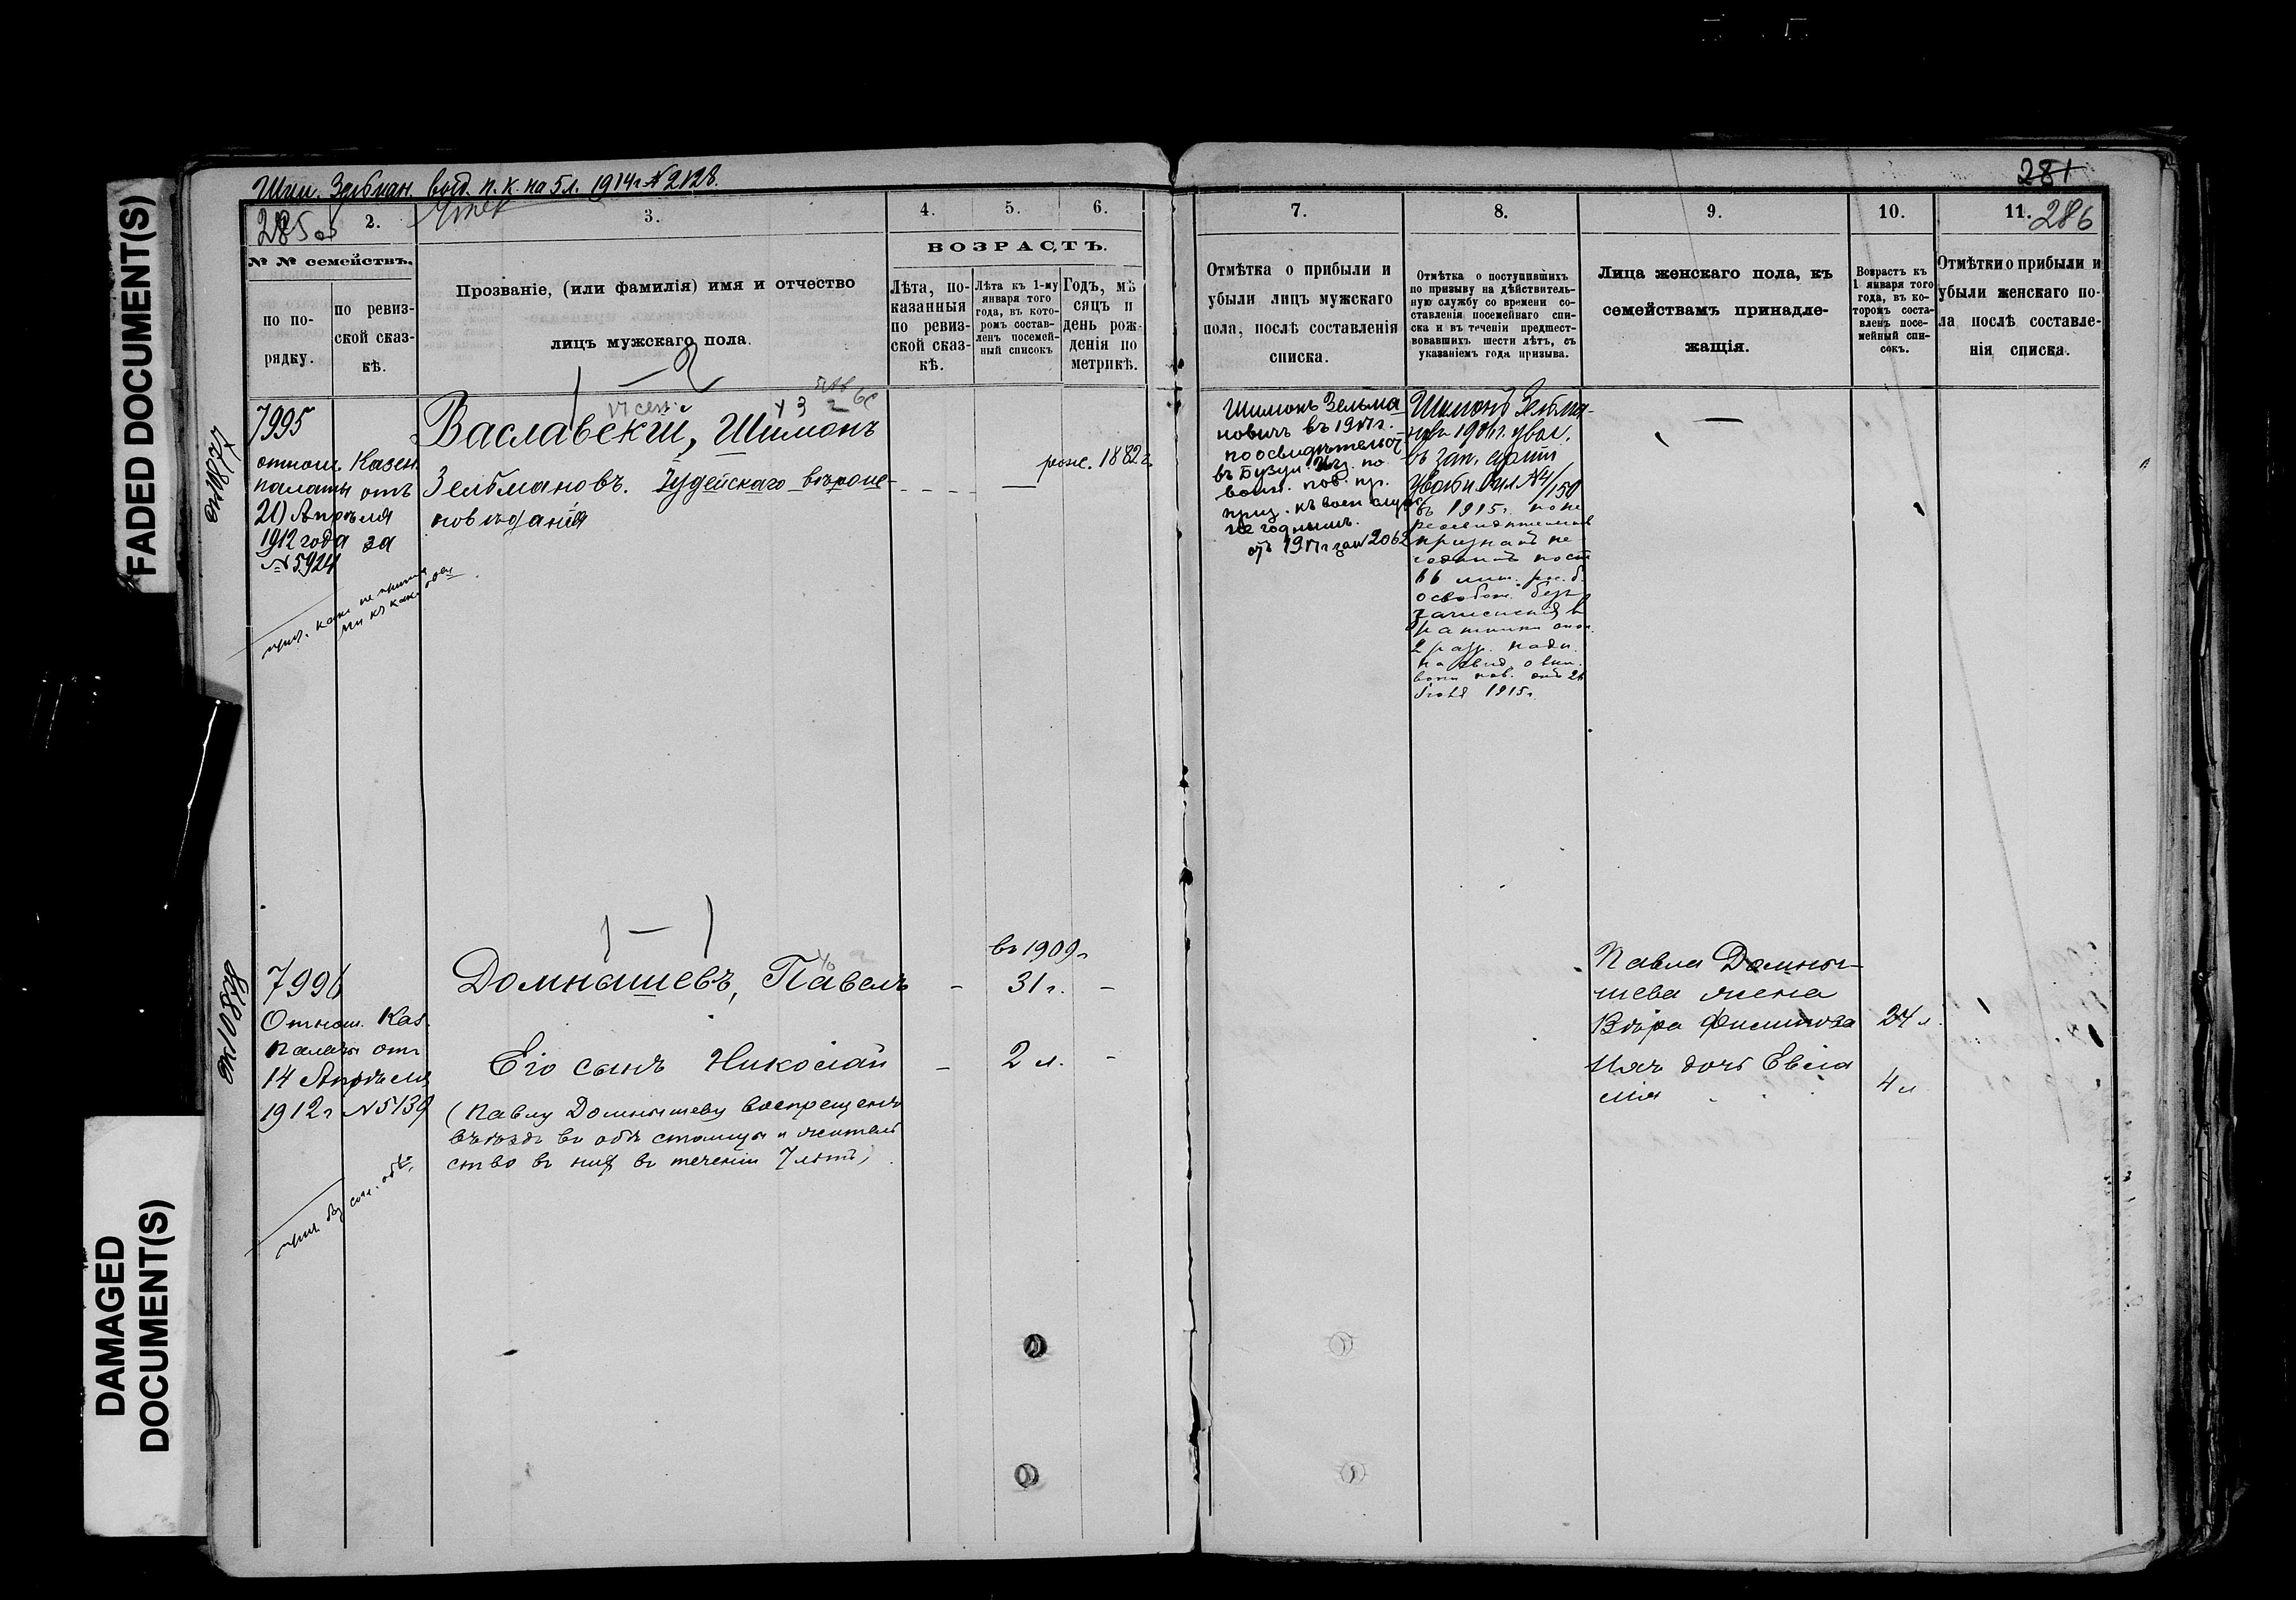 FADED DOCUMENT(S)
DAMAGED
DOCUMENT(S)
Шим. Зельман. выд. п. к. на 5 л. 1914 г. № 2128.
285 об
1.
2.
3.
№ № семействъ.
по по-
рядку.
по ревиз-
ской сказ-
кѣ.
Прозваніе, (или фамилія) имя и отчество
лицъ мужскаго пола.
4.
5.
6.
ВОЗРАСТЪ.
Лѣта, по-
казанныя
по ревиз-
ской сказ-
кѣ.
Лѣта къ 1-му
января того
года, въ кото-
ромъ состав-
ленъ посемей-
ный списокъ
Годъ, мѣ
сяцъ и
день рож-
денія по
метрикѣ.
7995
отнош. Казен.
палаты отъ
21 Апрѣля
1912 года за
№ 5924
Ваславскій, Шимонъ
Зельмановъ. Іудейскаго вѣроис-
повѣданія
рож. 1882 г.
7996
Отнош. Каз.
Палаты отъ
14 Апрѣля
1912 г № 5139
Домнышевъ, Павелъ
въ 1909 г
31 г.
Его сынъ Николай
2 л.
(Павлу Домнышеву воспрещенъ
въѣздъ въ обѣ столицы и житель
ство въ нихъ въ теченіи 7 лѣтъ)
281
286
7.
8.
9.
10.
11.
Отмѣтка о прибыли и
убыли лицъ мужскаго
пола, послѣ составленія
списка.
Отмѣтка о поступившихъ
по призыву на дѣйствитель-
ную службу со времени со-
ставленія посемейнаго спи-
ска и въ теченіи предшест-
вовавшихъ шести лѣтъ, съ
указаніемъ года призыва.
Лица женскаго пола, къ
семействамъ принадле-
жащія.
Возрастъ къ
1 января того
года, въ ко-
торомъ соста-
вленъ посе-
мейный спи-
сокъ.
Отмѣтки о прибыли и
убыли женскаго по-
ла послѣ составле-
нія списка.
Шимонъ Зельма
новичъ въ 1917 г.
по освидѣтельст.
въ Бузул. уѣз. по
воин. пов. пр.
приз. къ воен. служ
не годнымъ.
1917 г за № 2062
Шимонъ Зельма-
новъ 1906 г. увол.
въ зап. арміи
увол. бил № 4/150
въ 1915 г. по пе
реосвидѣтельств
признанъ не
годнымъ
освобож. безъ
зачисленія в
ратники опол.
2 разр.
1915 г.
Павла Домны-
шева жена
Вѣра Филипова
24 л.
Ихъ дочь Евгла
мія
4 л